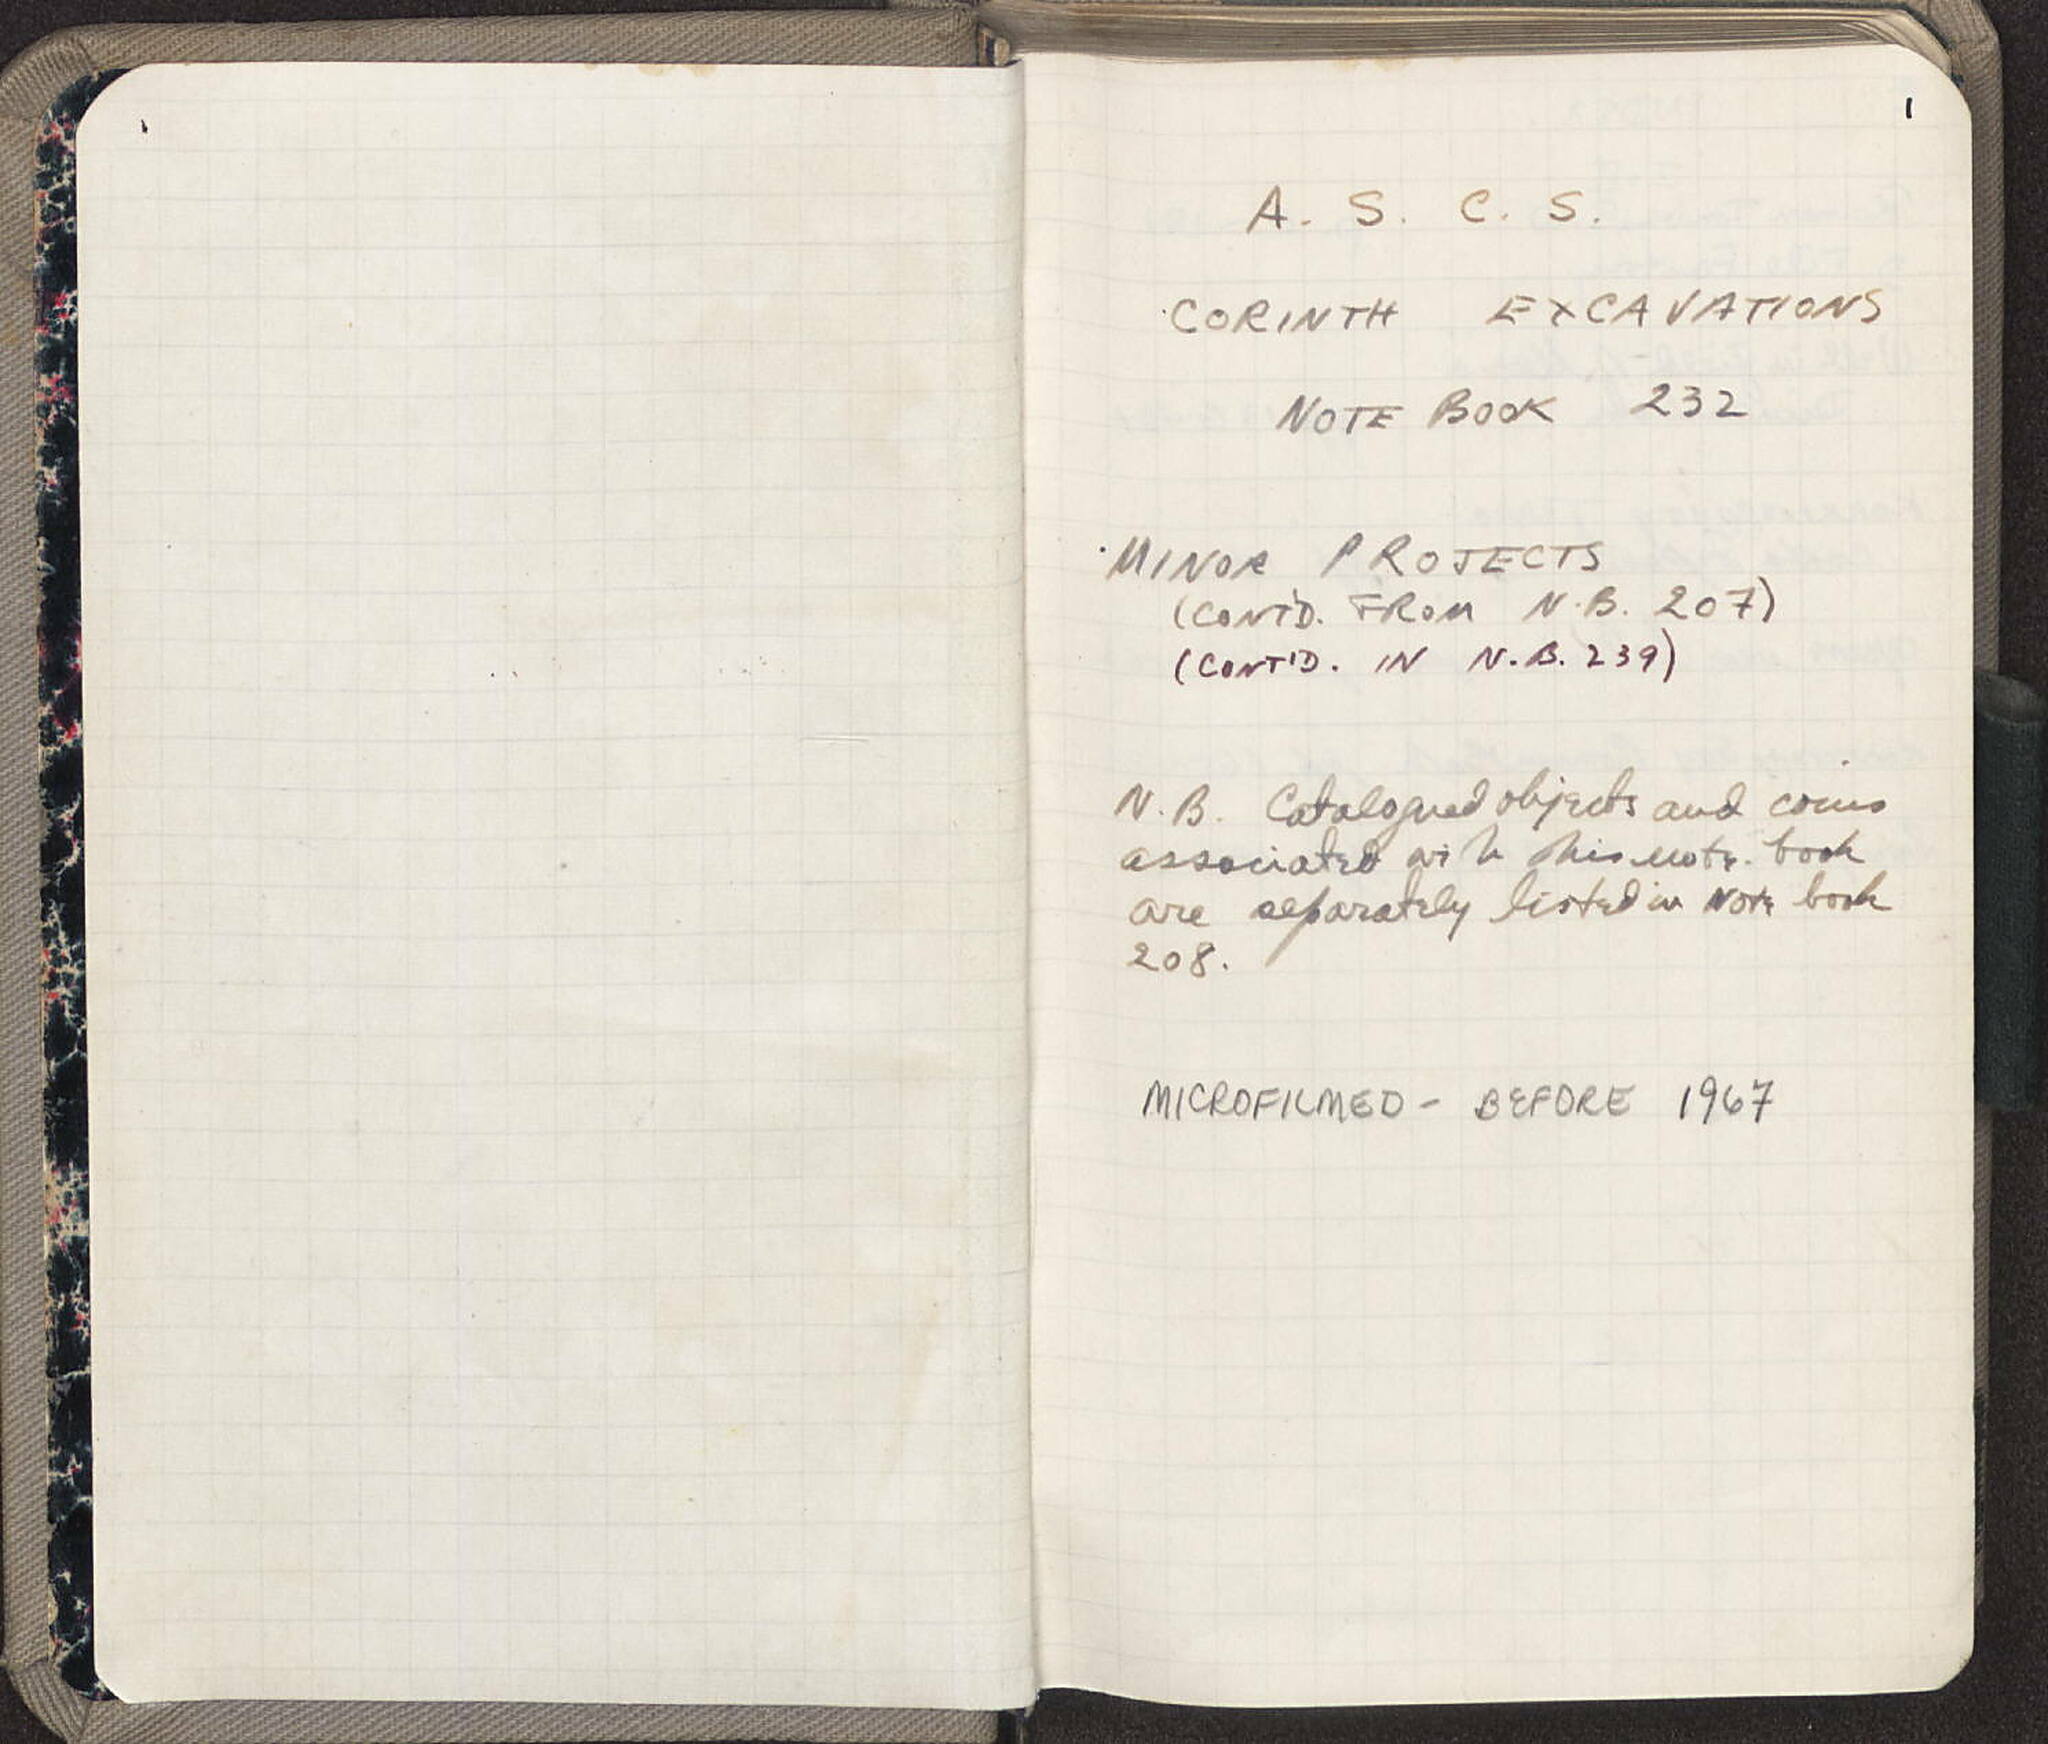 1
A. S. C. S.
CORINTH EXCAVATIONS
NOTE BOOK 232
MINOR PROJECTS
(CONT'D. FROM N.B. 207)
(CONT'D. IN N.B. 239)
N.B. Catalogued objects and coins
associated with this note book
are separately listed in Note book
208.
MICROFILMED - BEFORE 1967